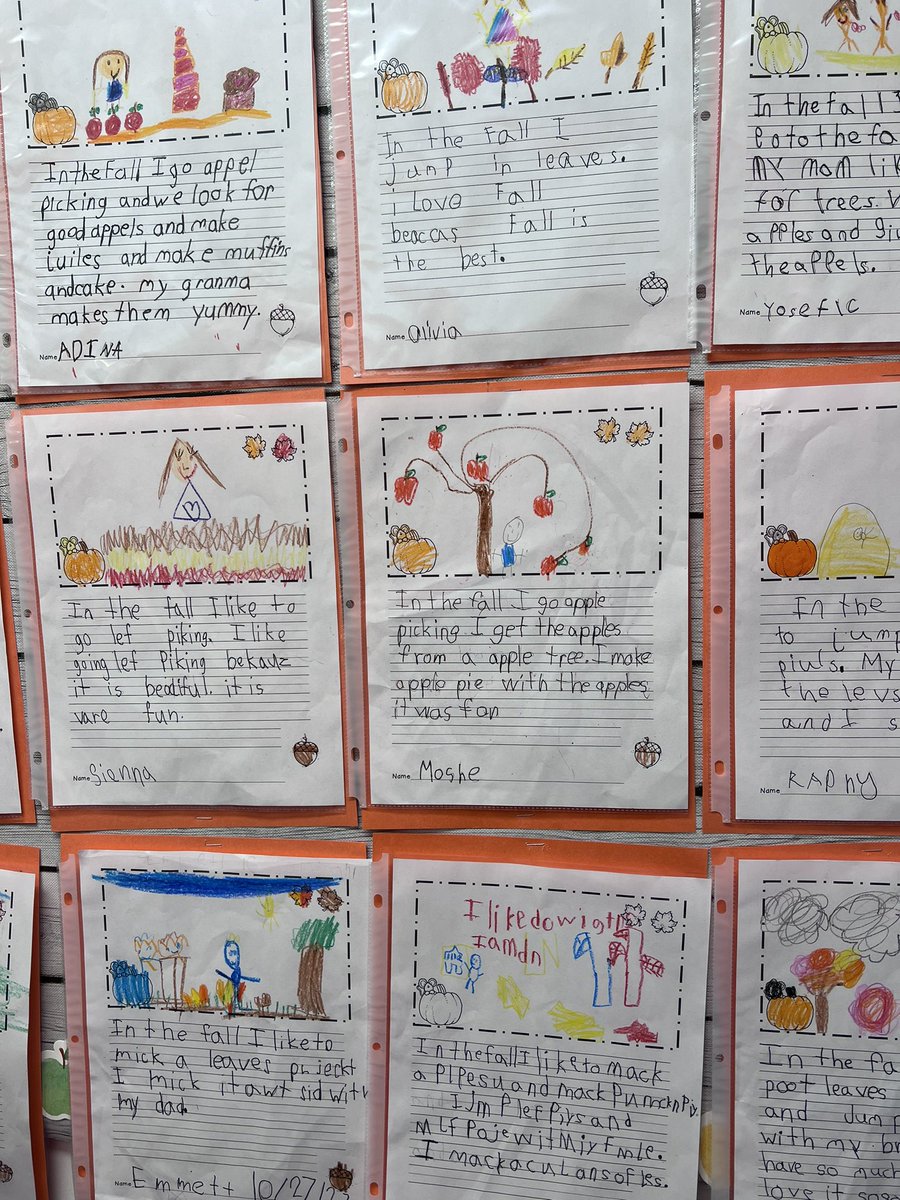 In the fall I go appel
picking and we look for
good appels and make
and make muffins
and cake. my granma
makes them yummy.
Name ADINA
In the Fall I
jump in leaves.
i Love Fall
beaccas Fall is
the best.
Name Olivia
In the fall I
to the fa
MY MOM lik
for trees.
apples and
the appels.
Name Yosef C
In the fall I like to
go lef piking. I like
going lef Piking bekauz
it is beatiful. it is
vare fun.
Name Sienna
In the fall I go apple
picking. I get the apples
from a apple tree. I make
apple pie with the apples
it was fan
Name Moshe
In the
to jump
piuls. My
the levs
and I s
Name RAPhy
In the fall I like to
mick a leaves
I mick it awt sid with
my dad.
Name Emmett 10/27/
I like
I am
In the fall I like to mack
a and mack
I and
I mack a
In the fa
poot leaves
and Jump
with my br
have so much
love it